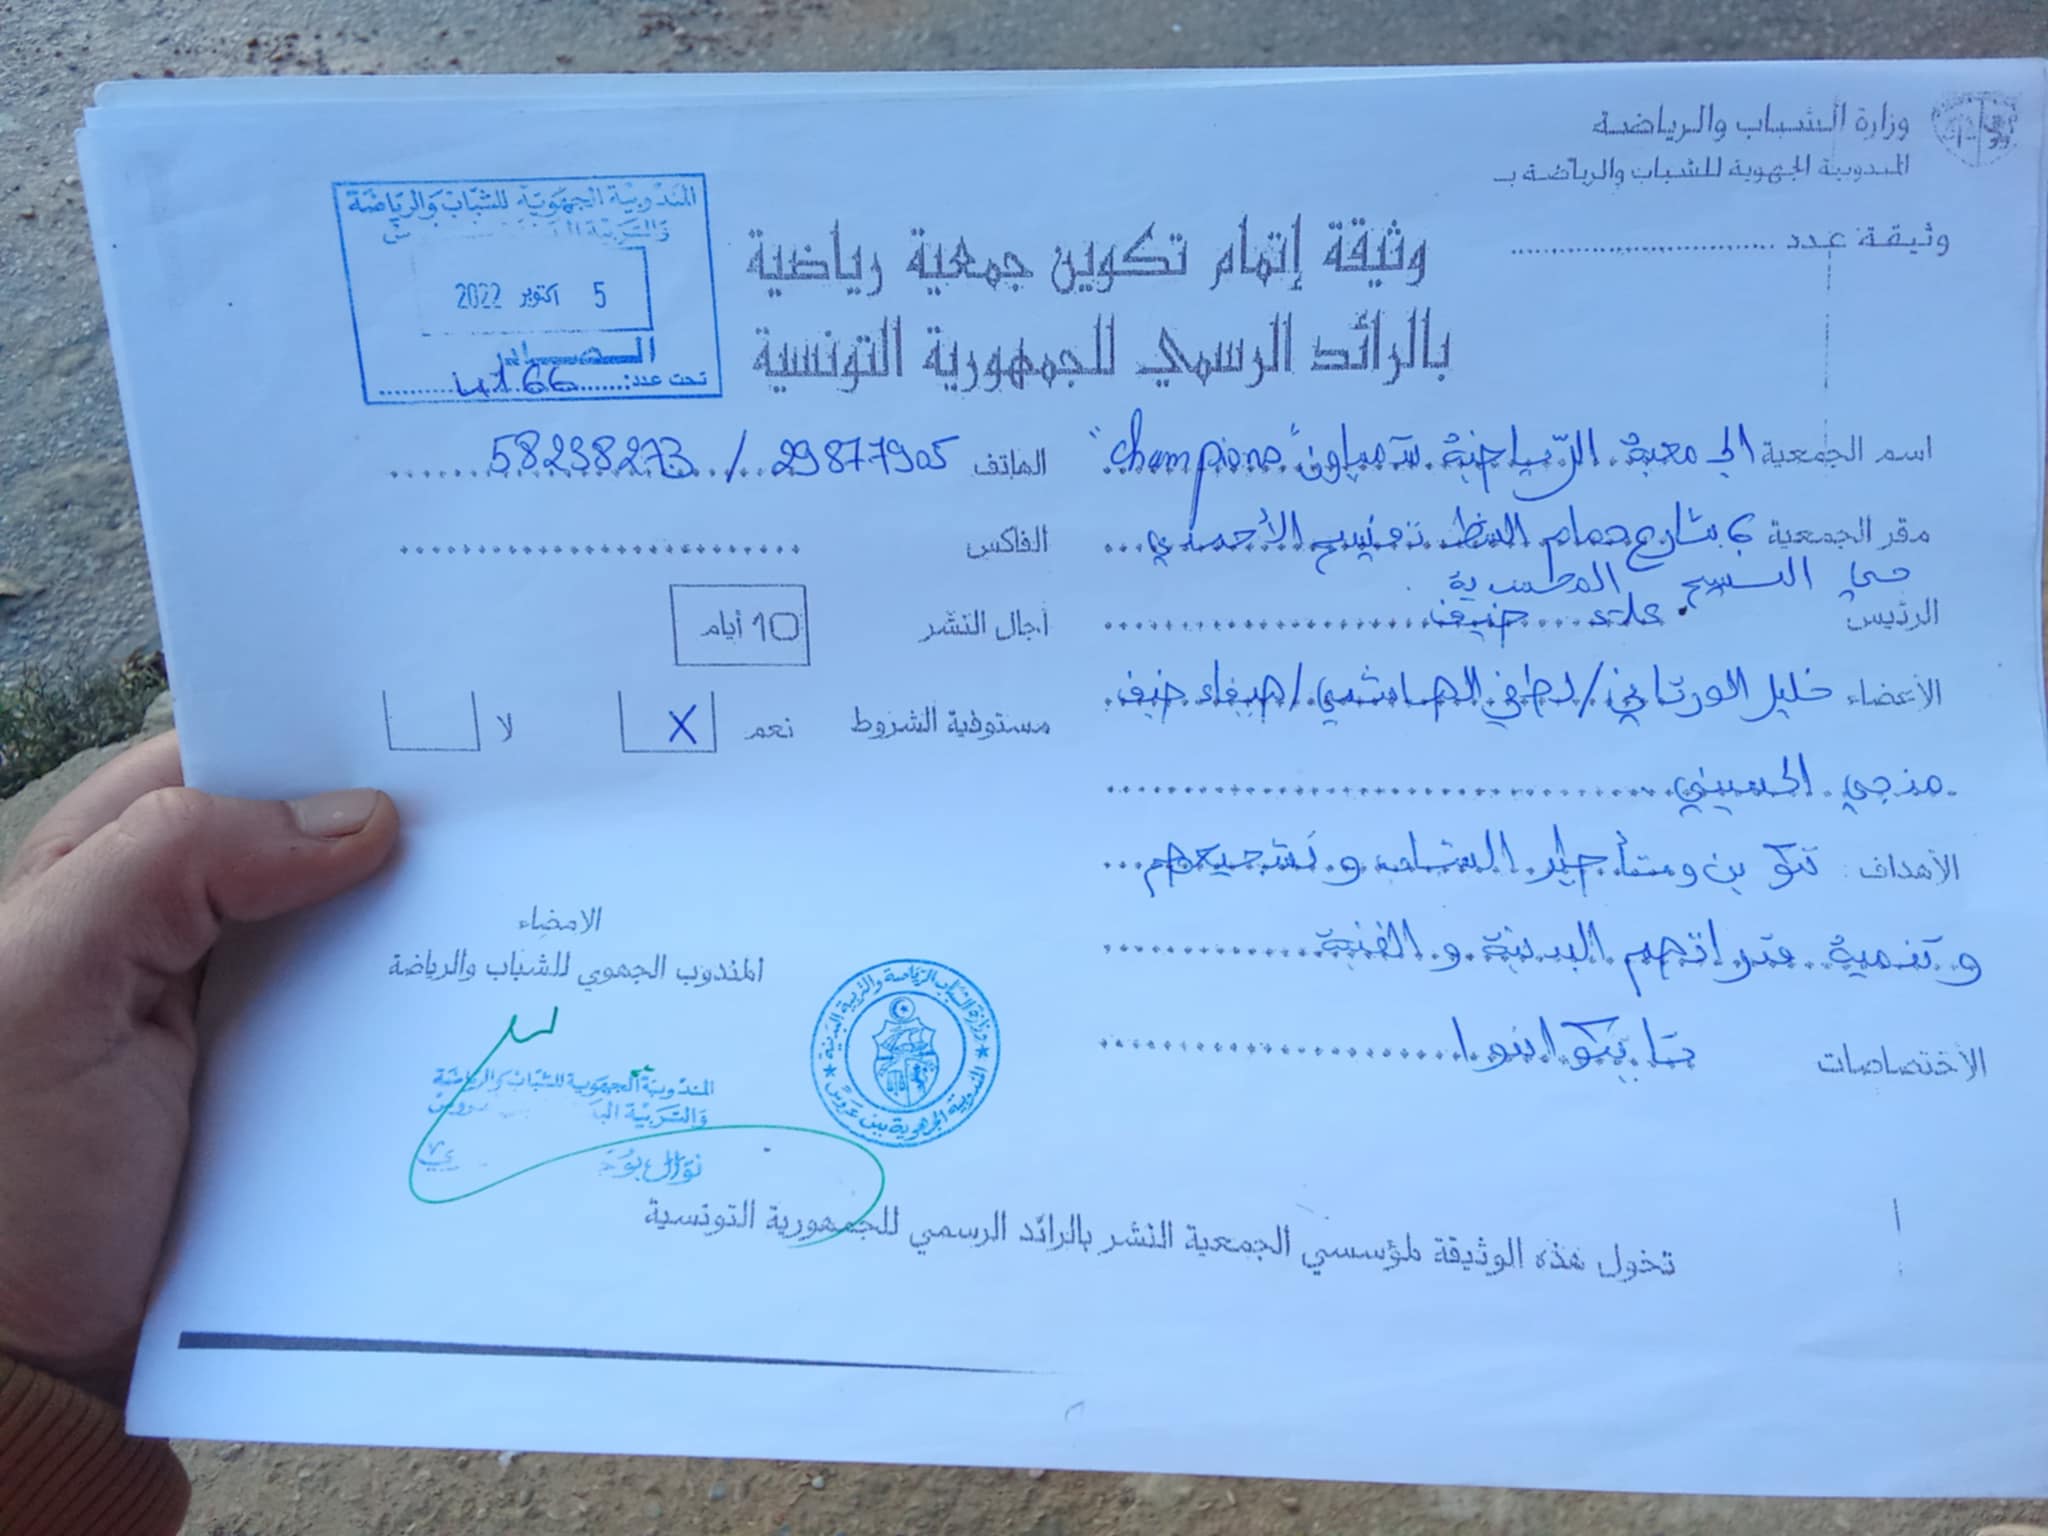 وزارة الشباب والرياضة
المندوبية الجهوية للشباب والرياضة بـ
وثيقة عدد
المندوبية الجهوية للشباب والرياضة
والتربية
5 أكتوبر 2022
الصادر
تحت عدد: 4166
وثيقة إتمام تكوين جمعية رياضية
بالرائد الرسمي للجمهورية التونسية
اسم الجمعية الجمعية الرياضية شمبيون "champions"
الهاتف 29877905 / 58238273
مقر الجمعية 6 شارع حمام الشط الأحمدي
الفاكس
حي النسيج المحمدية
الرئيس علاء ضيف
أجال النشر 10 أيام
الأعضاء خليل الورتاني / لطفي الهاشمي / هيفاء ضيف
مستوفية الشروط نعم X لا
منجي الحسيني
الأهداف: تكوين و تأطير الشباب و تشجيعهم
و تنمية قدراتهم البدنية و الفنية
الأختصاصات تايكواندوا
الامضاء
المندوب الجهوي للشباب والرياضة
المندوبية الجهوية للشباب والرياضة
والتربية
نوال
وزارة الشباب والرياضة والتربية البدنية
المندوبية الجهوية ببن عروس
تخول هذه الوثيقة لمؤسسي الجمعية النشر بالرائد الرسمي للجمهورية التونسية